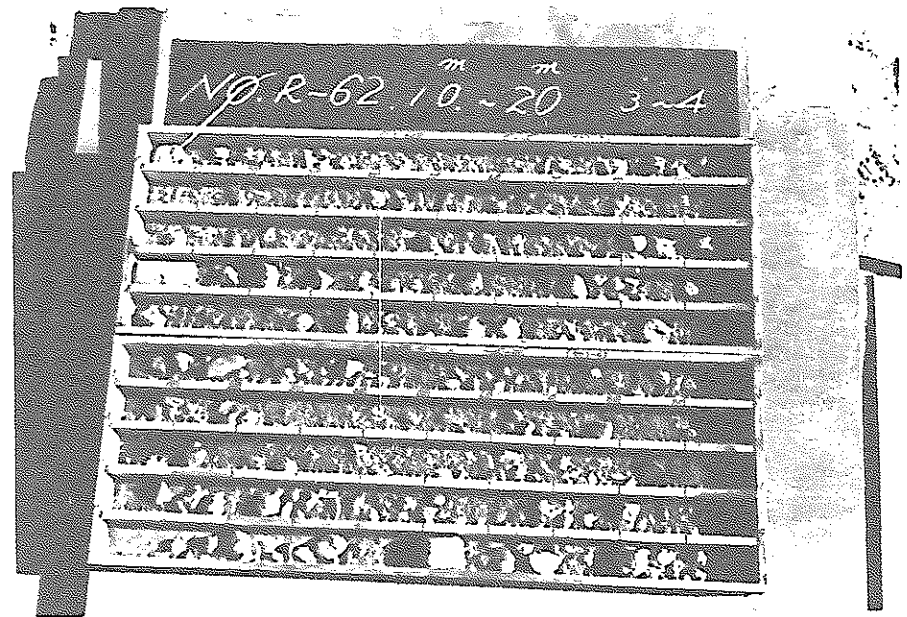 NO. R-62. 10m ~ 20m 3~4